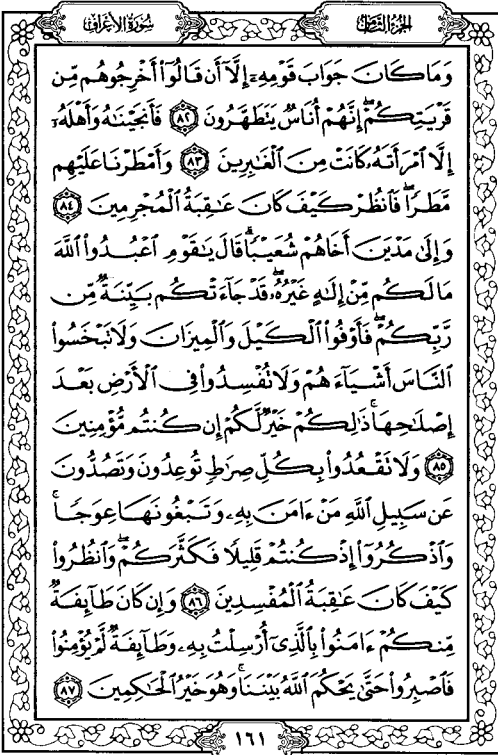 سُورَةُ الأَعۡرَافِ
الجُزۡءُ الثَّامِنُ
وَمَا كَانَ جَوَابَ قَوۡمِهِۦٓ إِلَّآ أَن قَالُوٓاْ أَخۡرِجُوهُم مِّن
قَرۡيَتِكُمۡۖ إِنَّهُمۡ أُنَاسٞ يَتَطَهَّرُونَ ٨٢ فَأَنجَيۡنَٰهُ وَأَهۡلَهُۥٓ
إِلَّا ٱمۡرَأَتَهُۥ كَانَتۡ مِنَ ٱلۡغَٰبِرِينَ ٨٣ وَأَمۡطَرۡنَا عَلَيۡهِم
مَّطَرٗاۖ فَٱنظُرۡ كَيۡفَ كَانَ عَٰقِبَةُ ٱلۡمُجۡرِمِينَ ٨٤
وَإِلَىٰ مَدۡيَنَ أَخَاهُمۡ شُعَيۡبٗاۚ قَالَ يَٰقَوۡمِ ٱعۡبُدُواْ ٱللَّهَ
مَا لَكُم مِّنۡ إِلَٰهٍ غَيۡرُهُۥۖ قَدۡ جَآءَتۡكُم بَيِّنَةٞ مِّن
رَّبِّكُمۡۖ فَأَوۡفُواْ ٱلۡكَيۡلَ وَٱلۡمِيزَانَ وَلَا تَبۡخَسُواْ
ٱلنَّاسَ أَشۡيَآءَهُمۡ وَلَا تُفۡسِدُواْ فِي ٱلۡأَرۡضِ بَعۡدَ
إِصۡلَٰحِهَاۚ ذَٰلِكُمۡ خَيۡرٞ لَّكُمۡ إِن كُنتُم مُّؤۡمِنِينَ
٨٥ وَلَا تَقۡعُدُواْ بِكُلِّ صِرَٰطٖ تُوعِدُونَ وَتَصُدُّونَ
عَن سَبِيلِ ٱللَّهِ مَنۡ ءَامَنَ بِهِۦ وَتَبۡغُونَهَا عِوَجٗاۚ
وَٱذۡكُرُوٓاْ إِذۡ كُنتُمۡ قَلِيلٗا فَكَثَّرَكُمۡۖ وَٱنظُرُواْ
كَيۡفَ كَانَ عَٰقِبَةُ ٱلۡمُفۡسِدِينَ ٨٦ وَإِن كَانَ طَآئِفَةٞ
مِّنكُمۡ ءَامَنُواْ بِٱلَّذِيٓ أُرۡسِلۡتُ بِهِۦ وَطَآئِفَةٞ لَّمۡ يُؤۡمِنُواْ
فَٱصۡبِرُواْ حَتَّىٰ يَحۡكُمَ ٱللَّهُ بَيۡنَنَاۚ وَهُوَ خَيۡرُ ٱلۡحَٰكِمِينَ ٨٧
١٦١